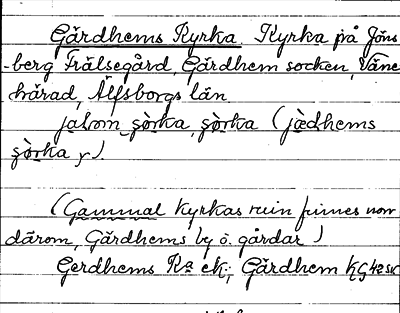 Gärdhems Kyrka. Kyrka på Jöns
-berg Frälsegård, Gärdhem socken, Väne
härad, Älfsborgs län.
jalrom şòrka, şòrka (jædhems
şòrka y).
(Gammal kyrkas ruin finnes norr
därom, Gärdhems by o. gårdar)
Gerdhems Ka ek; Gärdhem KG 42 SK